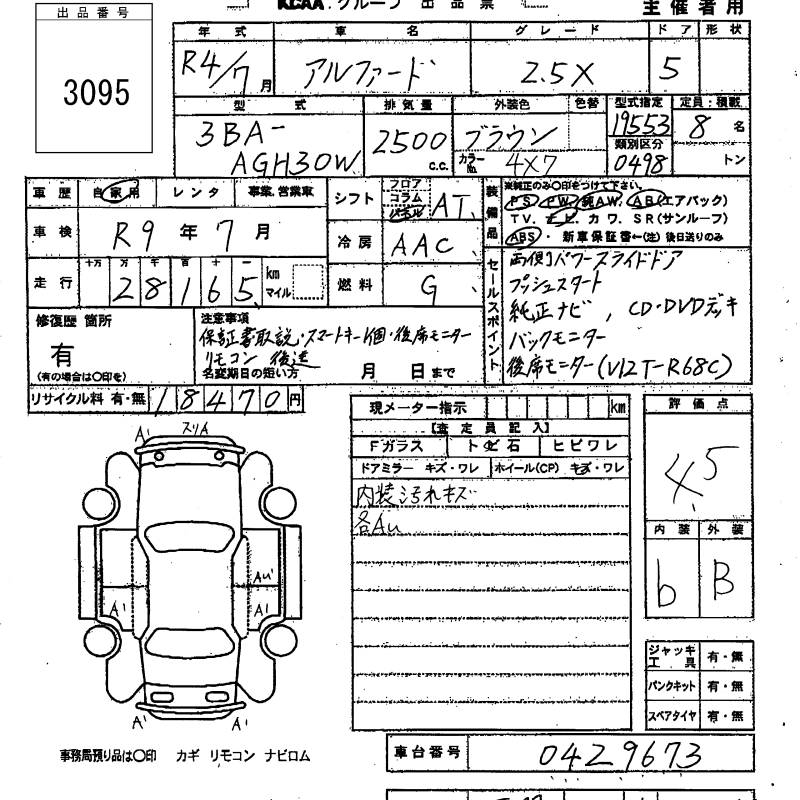 出品番号
3095
KCAA グループ 出品票
主催者用
年式 車名 グレード ドア 形状
R4/7月 アルファード 2.5X 5
型式 排気量 外装色 色替 型式指定 定員:積載
3BA-
AGH30W
2500 c.c.
ブラウン
カラーNo. 4X7
19553 8名
類別区分
0498 トン
車歴 自家用 レンタ 事業.営業車
車検 R9年7月
走行 十万 万 千 百 十 一
28165 km マイル
シフト フロア コラム パネル AT
冷房 AAC
燃料 G
装備品
※純正のみ○印をつけて下さい。
PS PW 純AW. AB(エアバック)
TV. ナビ. カワ. SR(サンルーフ)
ABS・ 新車保証書←(注) 後日送りのみ
セールスポイント
両側パワースライドドア
プッシュスタート
純正ナビ , CD・DVDデッキ
バックモニター
後席モニター(V12T-R68C)
修復歴 箇所
有
(有の場合は○印を)
注意事項
保証書取説・スマートキー1個・後席モニター
リモコン 後送
名変期日の短い方 月 日まで
リサイクル料 有・無 18470円
現メーター指示 km
【査定員記入】
Fガラス トビ石 ヒビワレ
ドアミラー キズ・ワレ ホイール(CP) キズ・ワレ
内装汚れキズ
各Au
評価点
4.5
内装 外装
b B
ジャッキ 工具 有・無
パンクキット 有・無
スペアタイヤ 有・無
A' スリA
Au'
A' A'
A' A'
事務局預り品は○印 カギ リモコン ナビロム
車台番号 0429673